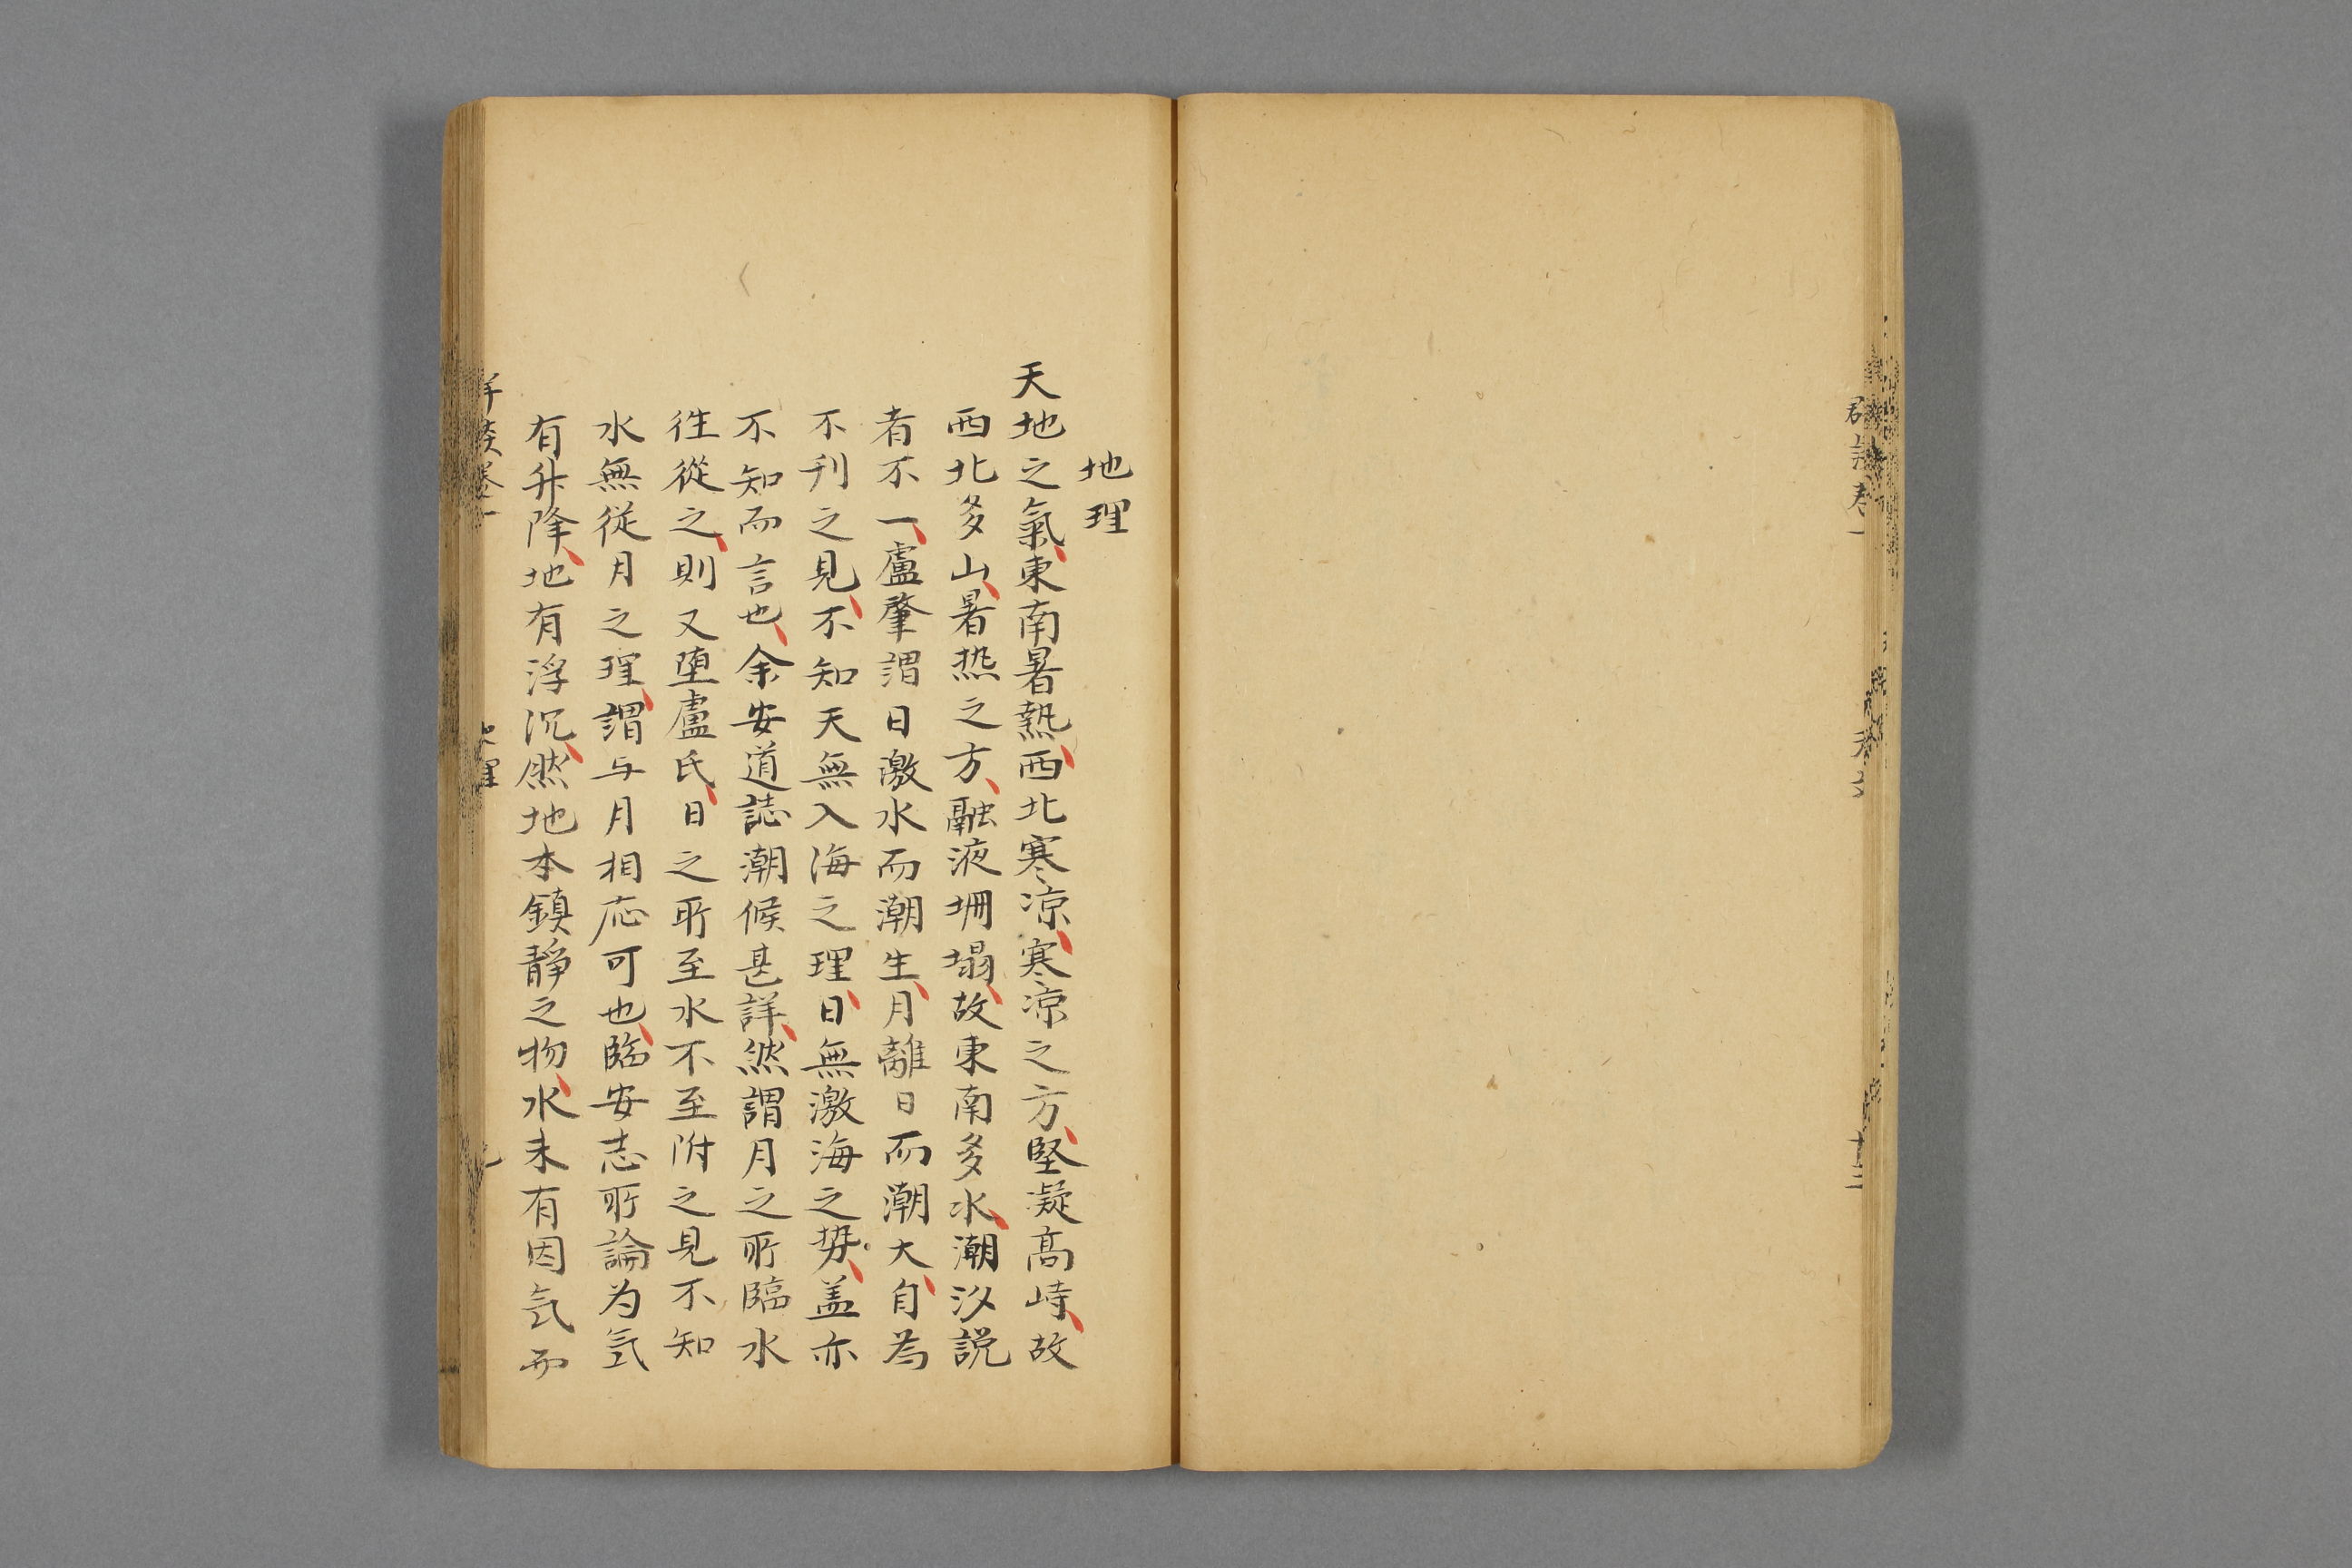 地理
天地之氣、東南暑熱、西北寒凉、寒凉之方、堅凝高峙、故
西北多山、暑热之方、融液坍塌、故東南多水、潮汐説
者不一、盧肇謂日激水而潮生、月離日而潮大、自為
不刊之見、不知天無入海之理、日無激海之势、盖亦
不知而言也、余安道誌潮候甚詳、然謂月之所臨水
徃從之、則又堕盧氏、日之所至水不至附之見不知
水無従月之理、謂与月相応可也、臨安志所論为氣
有升降、地有浮沉、然地本鎮静之物、水未有因氣而